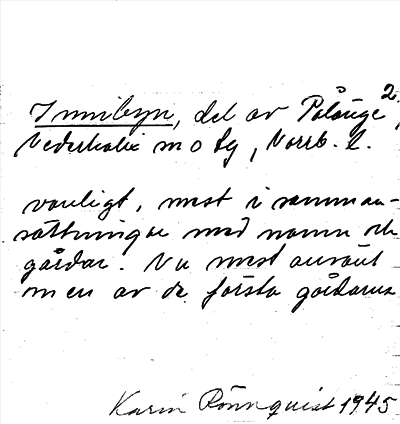 Innibyn, del av Pålänge 2,
Nederkalix m o sg, Norrb. l.
vanligt, mest i samman-
sättningar med namn och
gårdar. Nu mest använt
men av de första gårdarna
Karin Rönnquist 1945